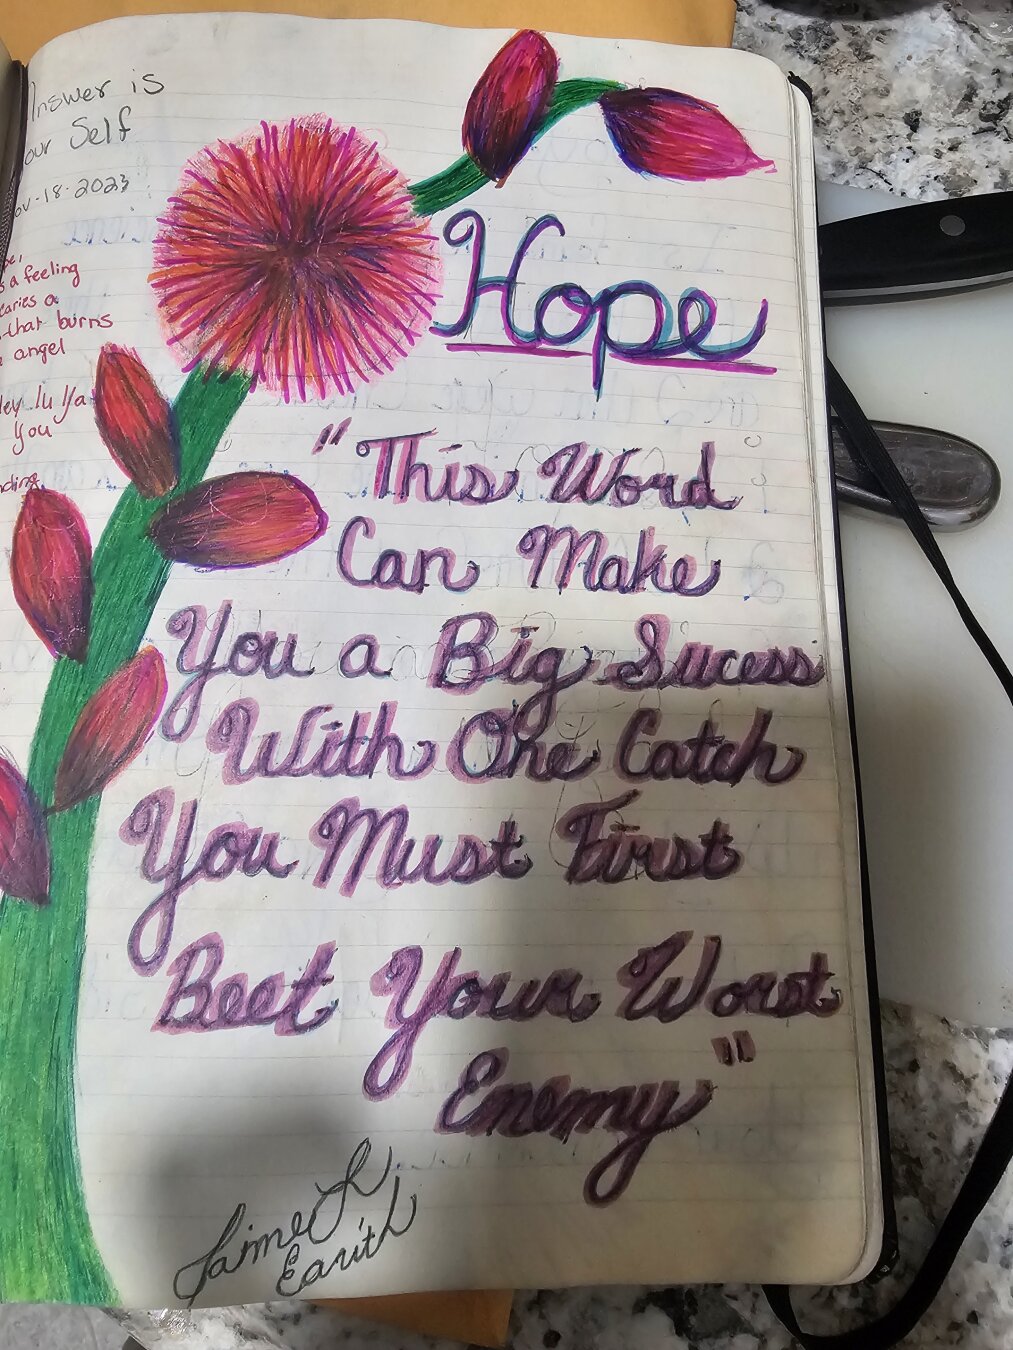 Answer is
our Self
ov-18-2023
a feeling
caries a
that burns
angel
ley lu ya
You
nding
Hope
"This Word
Can Make
You a Big Sucess
With One Catch
You Must First
Beet Your Worst
Enemy"
Jaime L
Earith